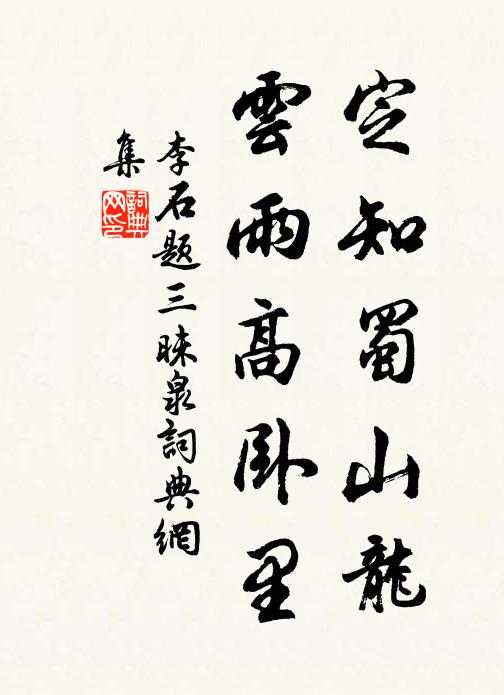 定知蜀山龍
雲雨高卧里
李石題三昧泉詞典網
集
詞典
网印